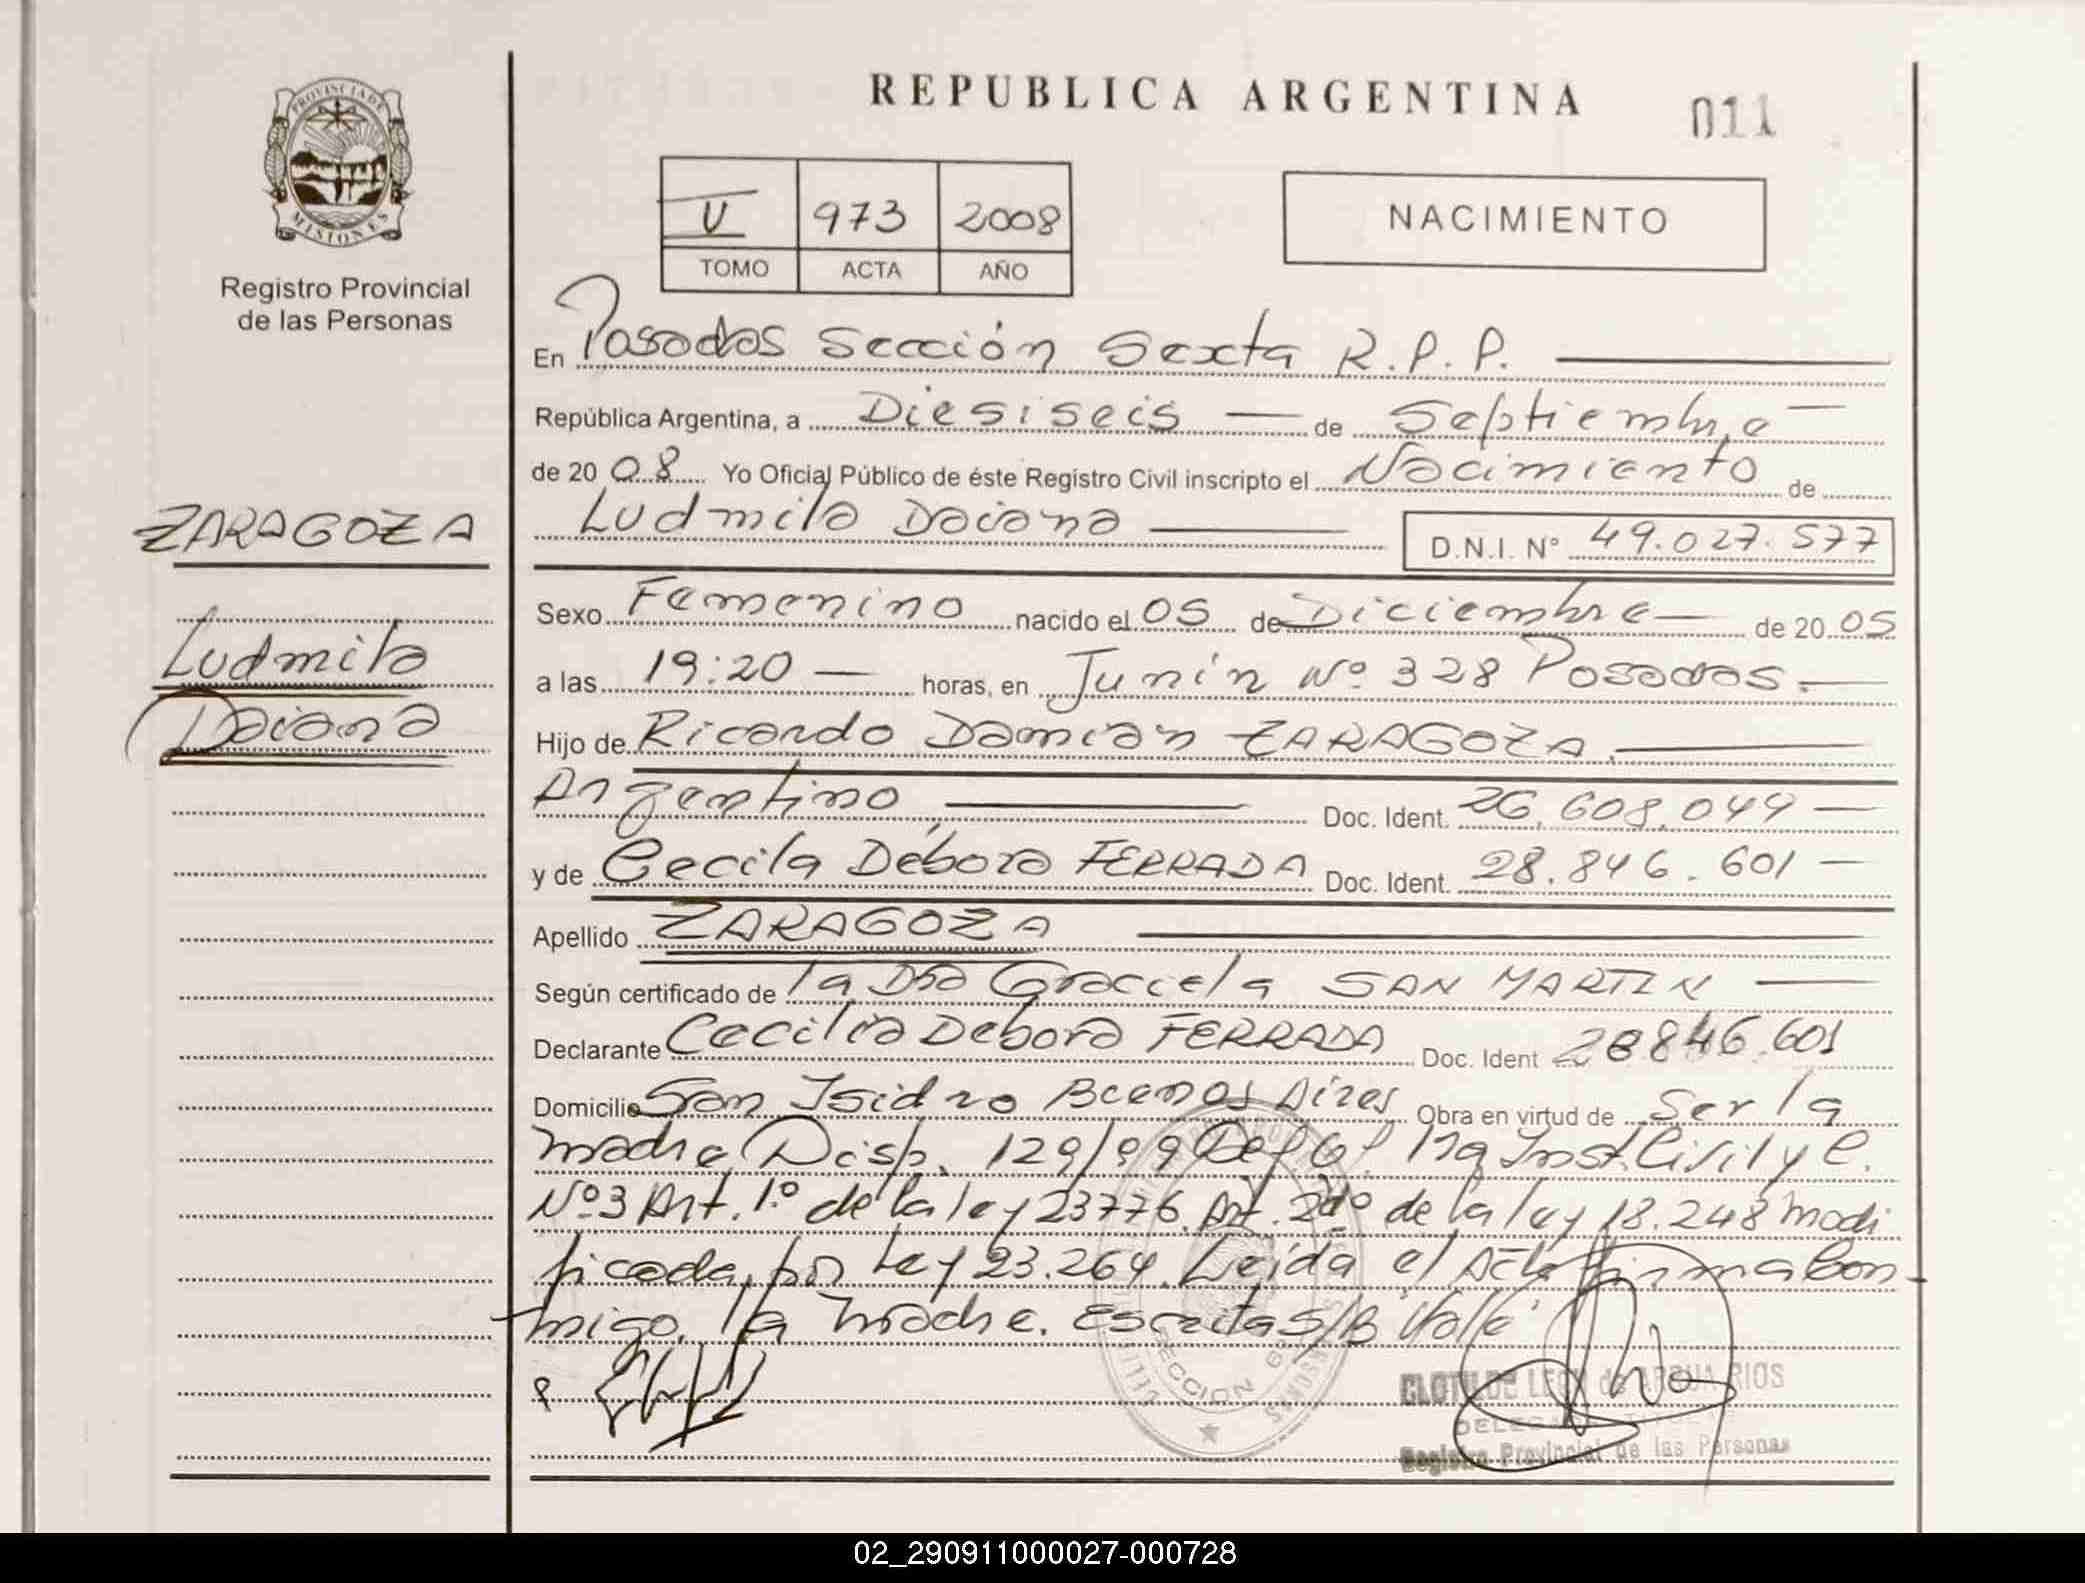 REPUBLICA ARGENTINA
011
PROVINCIA DE
MISIONES
Registro Provincial
de las Personas
V 973 2008
TOMO ACTA AÑO
NACIMIENTO
En Posadas Sección Sexta R.P.P.
República Argentina, a Diesiseis de Septiembre
de 20 08 Yo Oficial Público de éste Registro Civil inscripto el Nacimiento de
Ludmila Daiana D.N.I. N° 49.027.577
ZARAGOZA
Ludmila
Daiana
Sexo Femenino nacido el 05 de Diciembre de 20 05
a las 19:20 horas, en Junín Nº 328 Posadas.
Hijo de Ricardo Damián ZARAGOZA.
Argentino, Doc. Ident. 26.608.049
y de Cecila Débora FERRADA Doc. Ident. 28.846.601
Apellido ZARAGOZA
Según certificado de la Dra Graciela SAN MARTIN
Declarante Cecilia Debora FERRADA Doc. Ident 28846.601
Domicilio San Isidro Buenos Aires Obra en virtud de Ser la
madre Disp. 129/99 Inst. Civil y C.
Nº3 Art. 1.º de la ley 23776. Art. 2do de la ley 18.248 modi
ficada por Ley 23.264. Leída el Acta firma Con-
migo. la madre. Escrita S/B "Valle"
SECCION
CLOTILDE LEON de
Registro Provincial de las Personas
02_290911000027-000728